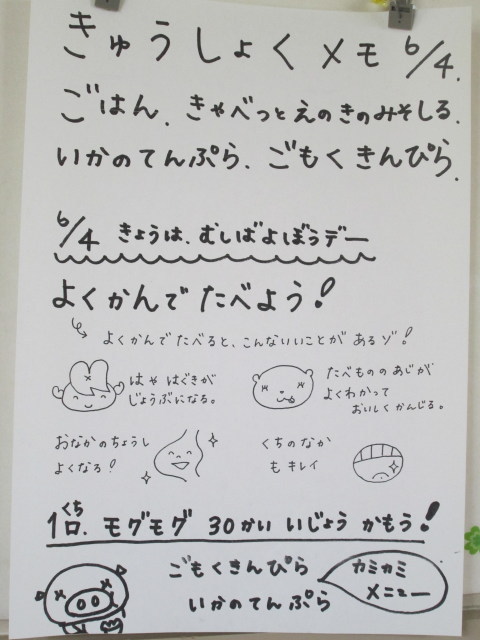 きゅうしょくメモ 6/4.
ごはん. きゃべつと えのきのみそしる.
いかのてんぷら. ごもくきんぴら.
6/4 きょうは、むしばよぼうデー
よくかんで たべよう!
よくかんで たべると、こんないいことが あるゾ!
はや はぐきが
じょうぶになる。
たべもののあじが
よくわかって
おいしくかんじる。
おなかのちょうし
よくなる!
くちのなか
も キレイ
くち
1口. モグモグ 30かい いじょう かもう!
ごもくきんぴら
いかのてんぷら
カミカミ
メニュー